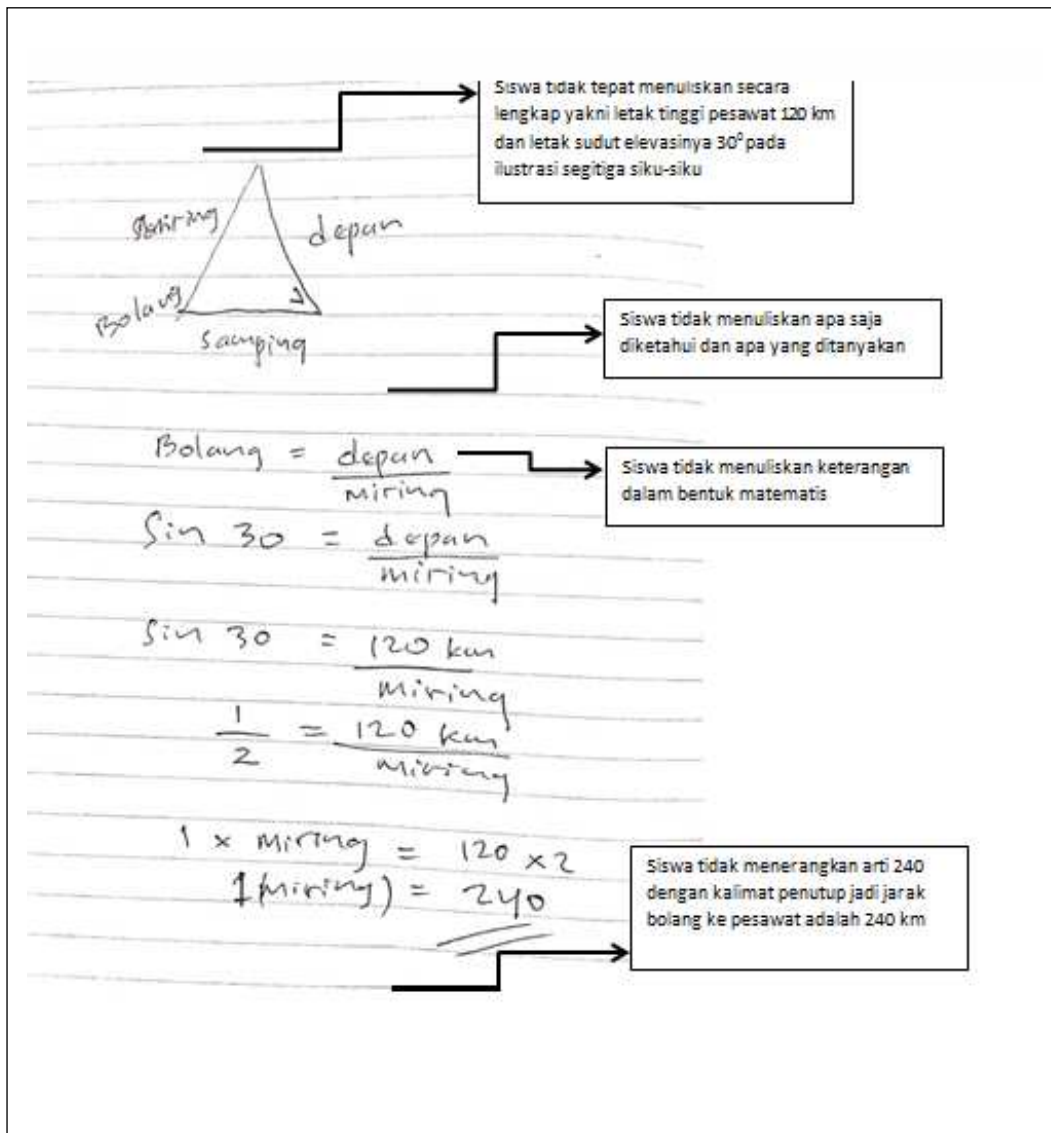 Siswa tidak tepat menuliskan secara
lengkap yakni letak tinggi pesawat 120 km
dan letak sudut elevasinya 30⁰ pada
ilustrasi segitiga siku-siku
miring
depan
Bolang
samping
Siswa tidak menuliskan apa saja
diketahui dan apa yang ditanyakan
Bolang = depan
miring
Siswa tidak menuliskan keterangan
dalam bentuk matematis
Sin 30 = depan
miring
Sin 30 = 120 km
miring
1 = 120 km
2 miring
1 x miring = 120 x 2
1 (miring) = 240
Siswa tidak menerangkan arti 240
dengan kalimat penutup jadi jarak
bolang ke pesawat adalah 240 km